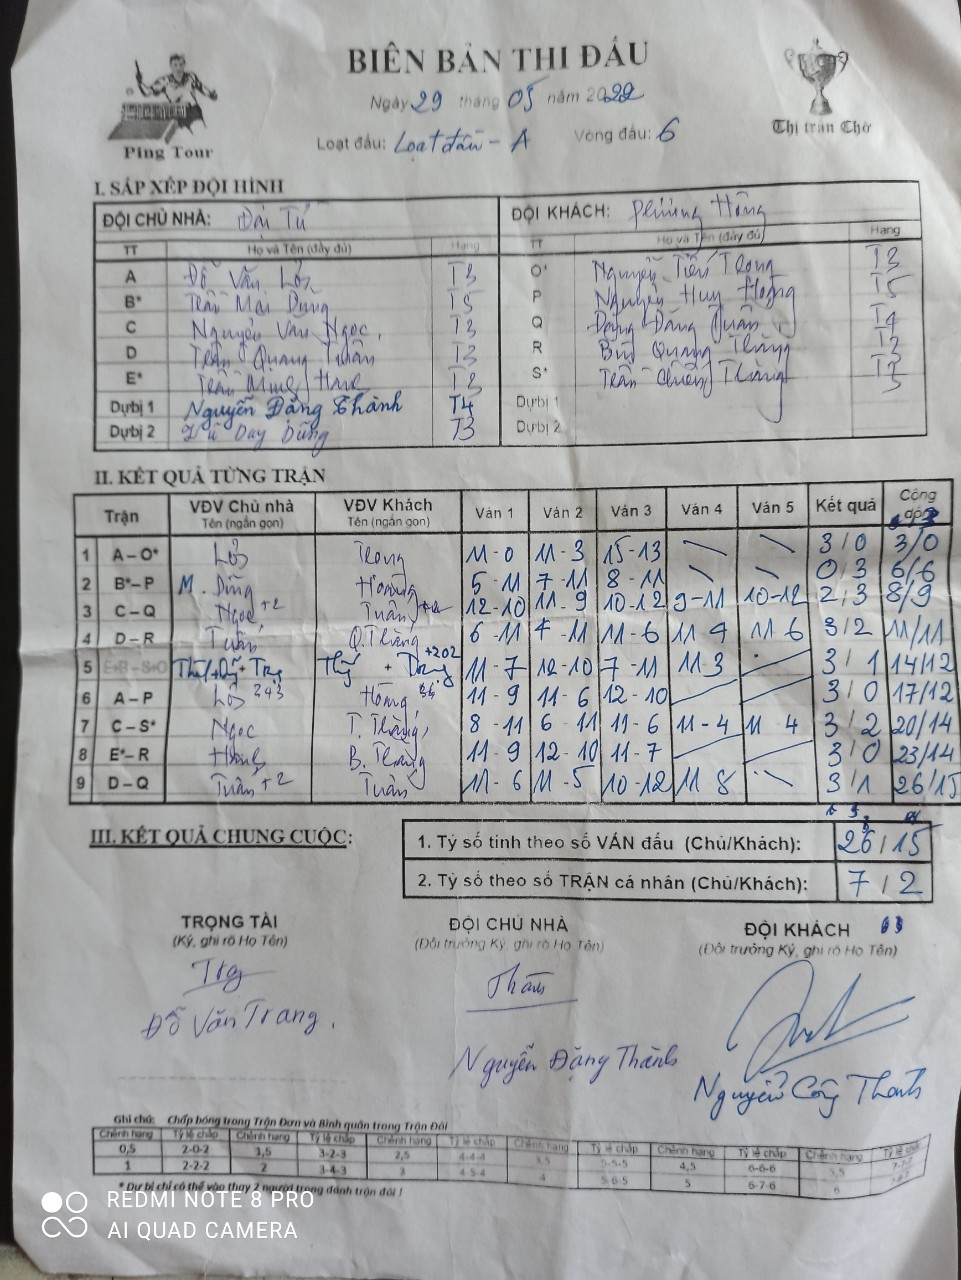 BIÊN BẢN THI ĐẤU
Ngày 29 tháng 05 năm 2022
Loạt đấu: Loạt đấu - A Vòng đấu: 6
Ping Tour
Thị trấn Chờ
I. SẮP XẾP ĐỘI HÌNH
ĐỘI CHỦ NHÀ: Đài Tứ ĐỘI KHÁCH: Phương Hồng
TT Họ và Tên (đầy đủ) Hạng TT Họ và Tên (đầy đủ) Hạng
A Đỗ Văn T3 O* Nguyễn Tiến Trọng T3
B* Trần Mai Dũng T5 P Nguyễn Huy Hoàng T5
C Nguyễn Văn Ngọc T3 Q Đặng Đăng Tuân T4
D Trần Quang Tuấn T3 R Bùi Quang Thắng T3
E* Trần Minh T3 S* Trần Chiến Thắng
Dự bị 1 Nguyễn Đăng Thành T4 Dự bị 1
Dự bị 2 Duy Dũng T3 Dự bị 2
II. KẾT QUẢ TỪNG TRẬN
Trận VĐV Chủ nhà Tên (ngắn gọn) VĐV Khách Tên (ngắn gọn) Ván 1 Ván 2 Ván 3 Ván 4 Ván 5 Kết quả Cộng
1 A – O* Trọng 11-0 11-3 15-13 3/0 3/0
2 B* – P M. Dũng Hoàng 5-11 7-11 8-11 0/3 6/6
3 C – Q Ngọc +2 Tuân 12-10 11-9 10-12 9-11 10-12 2/3 8/9
4 D – R Tuấn Q.Thắng 6-11 4-11 11-6 11-9 11 6 3/2 11/11
5 11-7 12-10 7-11 11-3 3/1 14/12
6 A – P Hoàng 11-9 11-6 12-10 3/0 17/12
7 C – S* Ngọc T. Thắng 8-11 6-11 11-6 11-4 11 4 3/2 20/14
8 E* – R B. Thắng 11-9 12-10 11-7 3/0 23/14
9 D – Q Tuấn +2 Tuân 11-6 11-5 10-12 11 8 3/1 26/15
III. KẾT QUẢ CHUNG CUỘC:
1. Tỷ số tính theo số VÁN đấu (Chủ/Khách): 26/15
2. Tỷ số theo số TRẬN cá nhân (Chủ/Khách): 7/2
TRỌNG TÀI ĐỘI CHỦ NHÀ ĐỘI KHÁCH
(Ký, ghi rõ Họ Tên) (Đội trưởng Ký, ghi rõ Họ Tên) (Đội trưởng Ký, ghi rõ Họ Tên)
Trg
Đỗ Văn Trang
Nguyễn Đặng Thành
Nguyễn Công Thanh
Ghi chú: Chấp bóng trong Trận Đơn và Bình quân trong Trận Đôi
Chênh hạng Tỷ lệ chấp Chênh hạng Tỷ lệ chấp Chênh hạng Tỷ lệ chấp Chênh hạng Tỷ lệ chấp Chênh hạng Tỷ lệ chấp Chênh hạng Tỷ lệ chấp
0,5 2-0-2 1,5 3-2-3 2,5 4-4-4 3,5 5-5-5 4,5 6-6-6 5,5
1 2-2-2 2 3-4-3 3 4-5-4 4 5-6-5 5 6-7-6 6
* Dự bị chỉ có thể vào thay 2 người trong đánh trận đôi !
REDMI NOTE 8 PRO
AI QUAD CAMERA